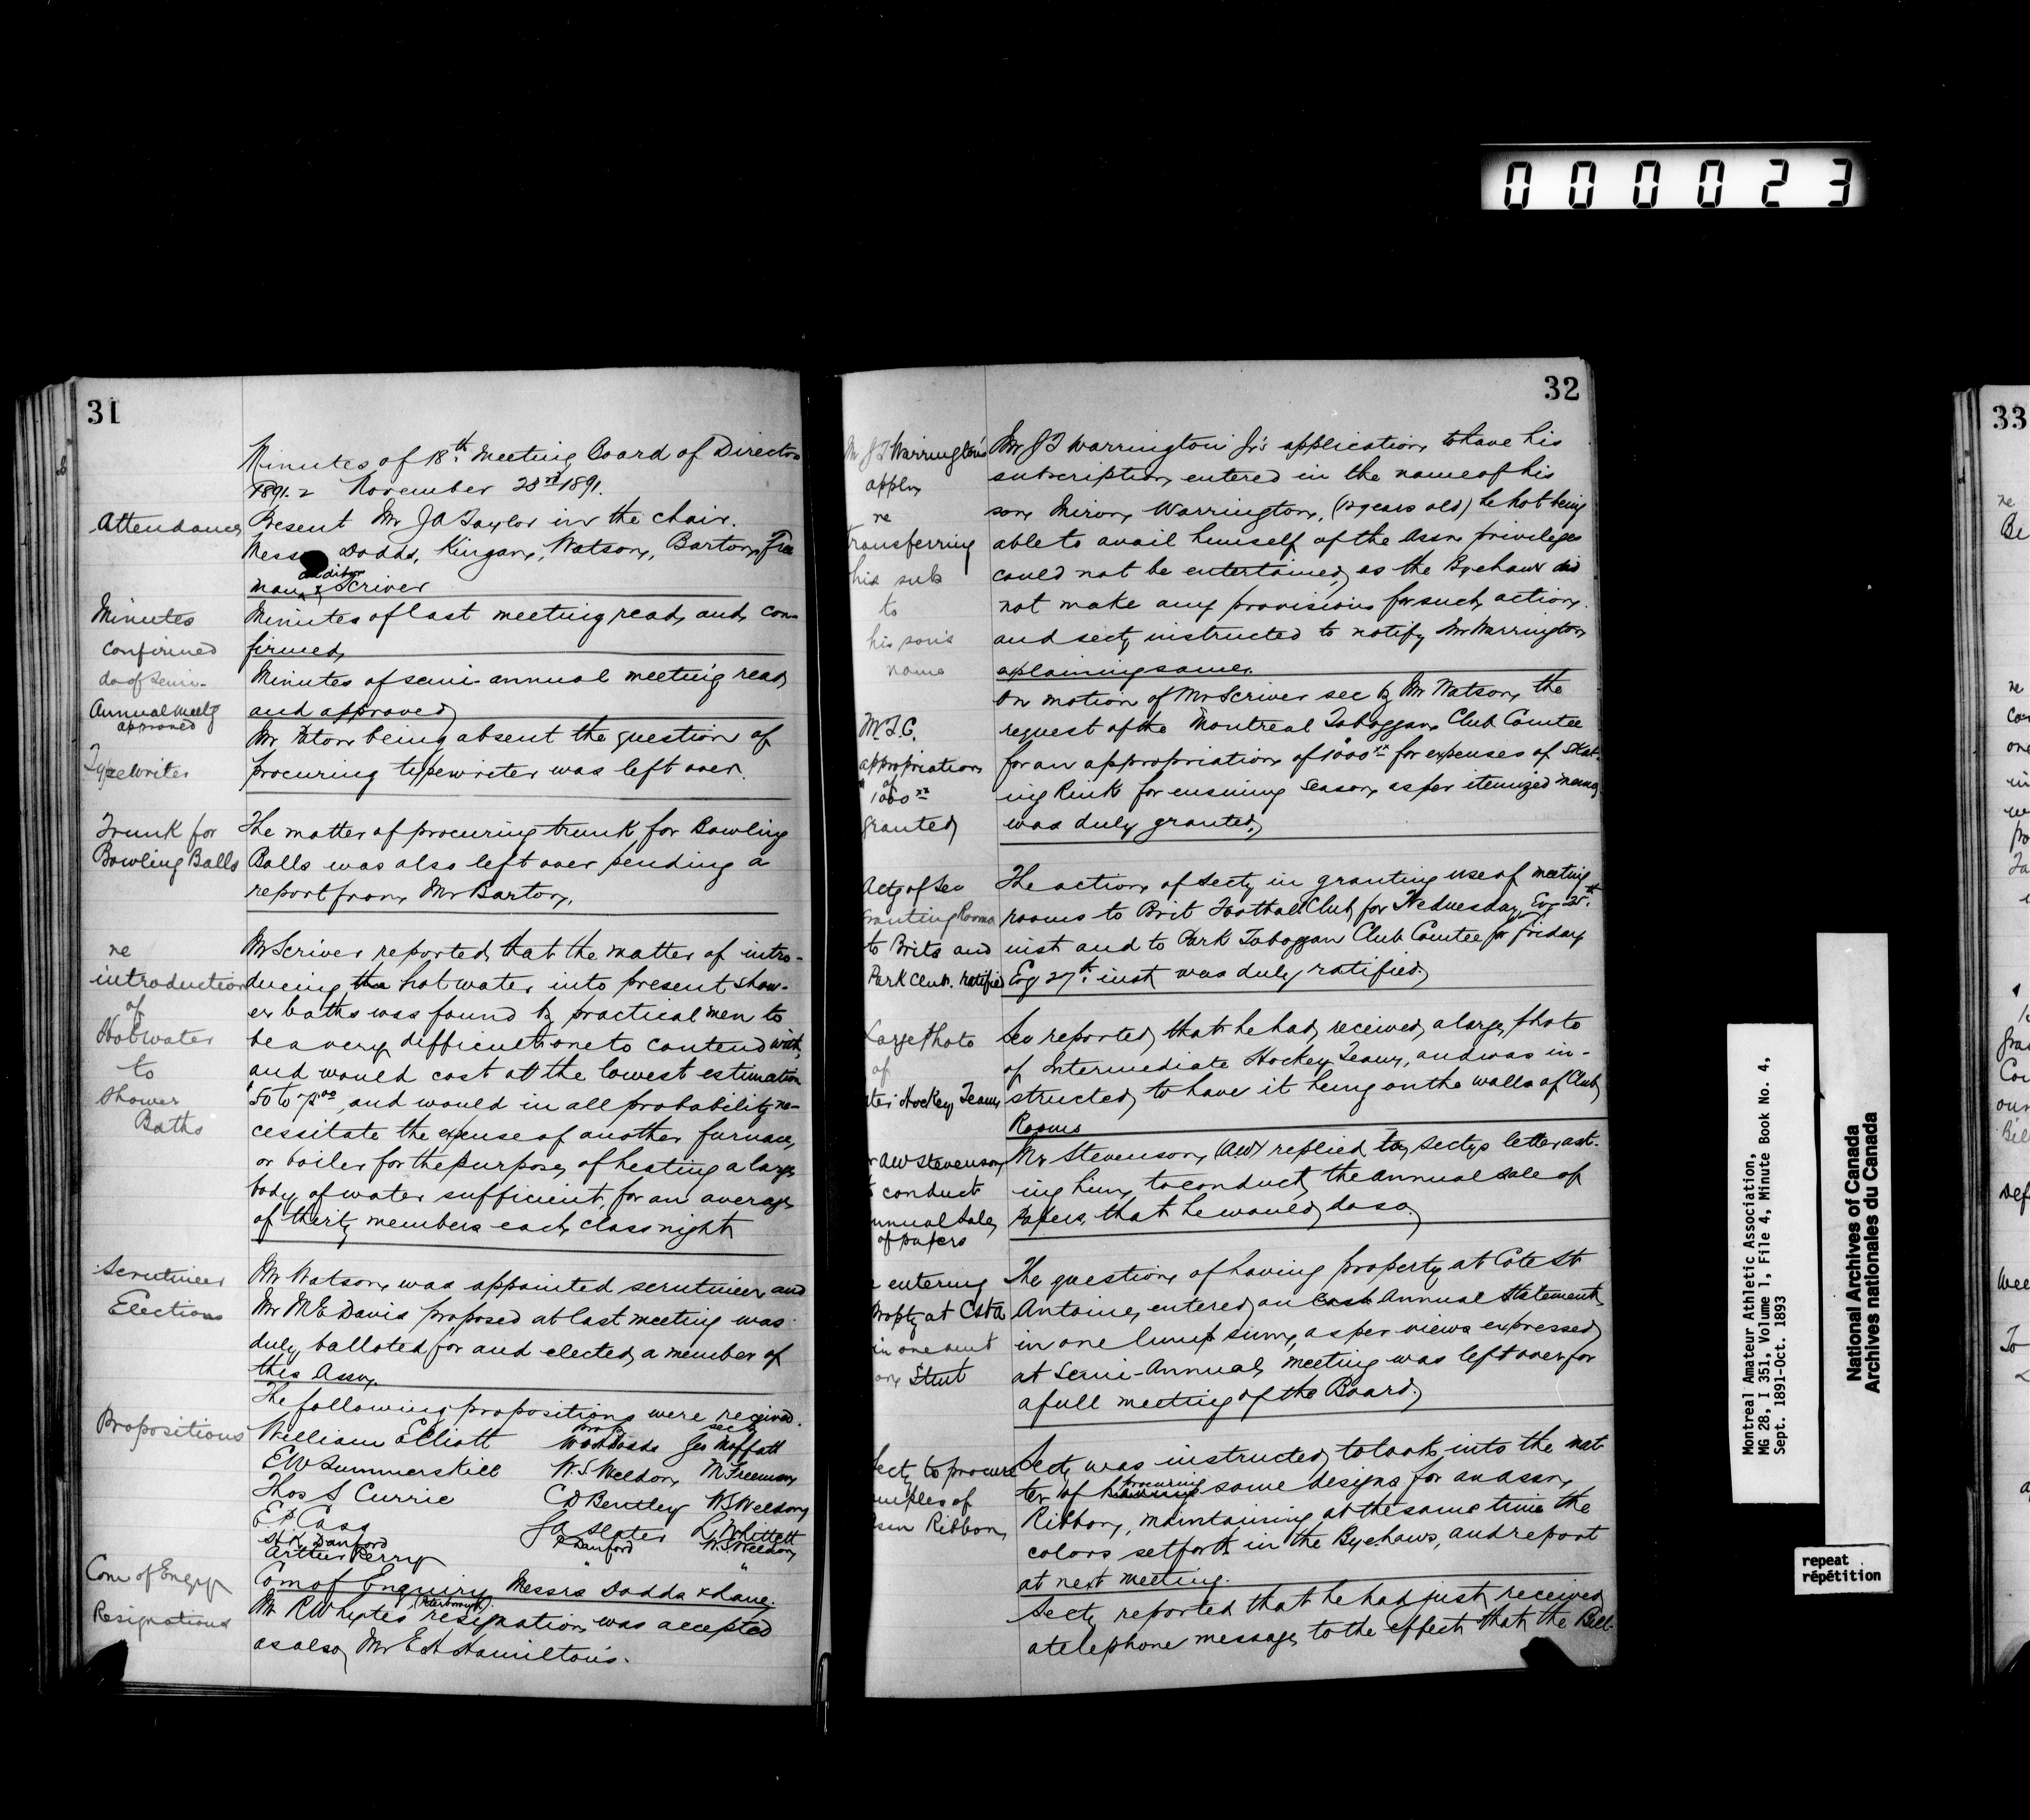 000023
31
Minutes of 18th Meeting Board of Directors
1891-2 November 23rd 1891.
Attendance
Present Mr JA Taylor in the chair.
Messrs Dodds, Kingan, Watson, Barton, Free
auditor
man & Scriver
Minutes
confirmed
Minutes of last meeting read and con-
firmed
do of Semi-
Annual Meetg
approved
Minutes of semi-annual meeting read
and approved
Typewriter
Mr Paton being absent the question of
procuring typewriter was left over.
Trunk for
Bowling Balls
The matter of procuring trunk for Bowling
Balls was also left over pending a
report from Mr Barton.
re
introduction
of
Hot water
to
Shower
Baths
Mr Scriver reported that the matter of intro-
ducing the hot water into present show-
er baths was found by practical men to
be a very difficult one to contend with,
and would cost at the lowest estimation
$50 to 75.00, and would in all probability ne-
cessitate the expense of another furnace,
or boiler for the purpose of heating a large
body of water sufficient for an average
of thirty members each class night
Scrutineer
Elections
Mr Watson was appointed scrutineer and
Mr M E Davis proposed at last meeting was
duly balloted for and elected a member of
this Assn.
Propositions
The following propositions were received.
prop secd
William Elliott W H Dodds Geo Moffatt
E W Summerskill W.S. Weldon M Freeman
Thos S Currie C D Bentley W S Weldon
E P Cass J A Slater L Whittett
St K Danford P Danford W S Weldon
Arthur Perry " "
Com of Enqy
Com of Enquiry Messrs Dodds & Lane.
Resignations
(Peterborough)
Mr R Whyte's resignation was accepted
as also Mr E H Hamilton's.
32
Mr J T Warrington's
appln
re
transferring
his sub
to
his son's
name
Mr J T Warrington Jr's application to have his
subscription entered in the name of his
son Miron Warrington, (12 years old) he not being
able to avail himself of the Assn privileges
could not be entertained, as the Bye Laws did
not make any provisions for such action.
and secty instructed to notify Mr Warrington
explaining same.
M.T.C.
appropriation
of
$1000 xx
granted
On motion of Mr Scriver sec by Mr Watson the
request of the Montreal Toboggan Club Comtee
for an appropriation of $1000 xx for expenses of Skat-
ing Rink for ensuing season as per itemized memo
was duly granted,
Actg of Sec
granting Rooms
to Brits and
Park Club. ratified
The action of Secty in granting use of meeting
rooms to Brit Football Club for Wednesday Evg 25th
inst and to Park Toboggan Club Comtee for Friday
Evg 27th inst was duly ratified.
Large Photo
of
ter Hockey Team
Sec reported that he had received a large photo
of Intermediate Hockey Team, and was in-
structed to have it hung on the walls of Club
Rooms
r AW Stevenson
conduct
nnual Sale
of papers
Mr Stevenson, (AW) replied to Sectys letter ask-
ing him to conduct the annual sale of
Papers, that he would do so,
entering
Propty at CstA
in one amt
on Stmt
The question of having property at Cote St
Antoine, entered on Cash Annual Statement
in one lump sum, as per views expressed
at Semi-Annual, meeting was left over for
a full meeting of the Board.
Secty to procure
amples of
Assn Ribbon
Secty was instructed to look into the mat-
procuring
ter of having some designs for an assn
Ribbon, maintaining at the same time the
colors set forth in the Bye-Laws, and report
at next meeting.
Secty reported that he had just received
a telephone message to the effect that the Bell
33
Montreal Amateur Athletic Association,
MG 28, I 351, Volume 1, File 4, Minute Book No. 4,
Sept. 1891-Oct. 1893
National Archives of Canada
Archives nationales du Canada
repeat
répétition